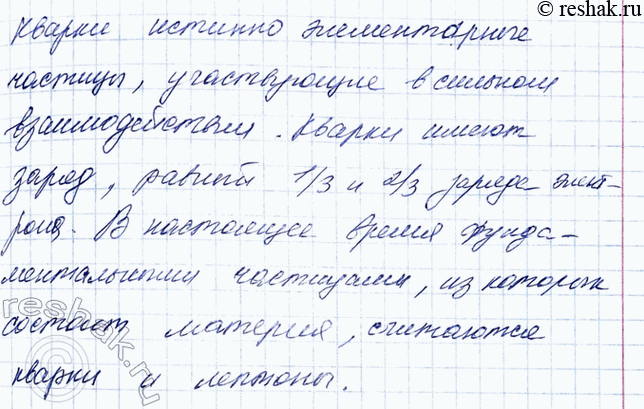 © reshak.ru
Кварки истинно элементарные
частицы, участвующие в сильном
взаимодействии. Кварки имеют
заряд, равный 1/3 и 2/3 заряда элект-
рона. В настоящее время фунда-
ментальными частицами, из которых
состоит материя, считаются
кварки и лептоны.
reshak.ru